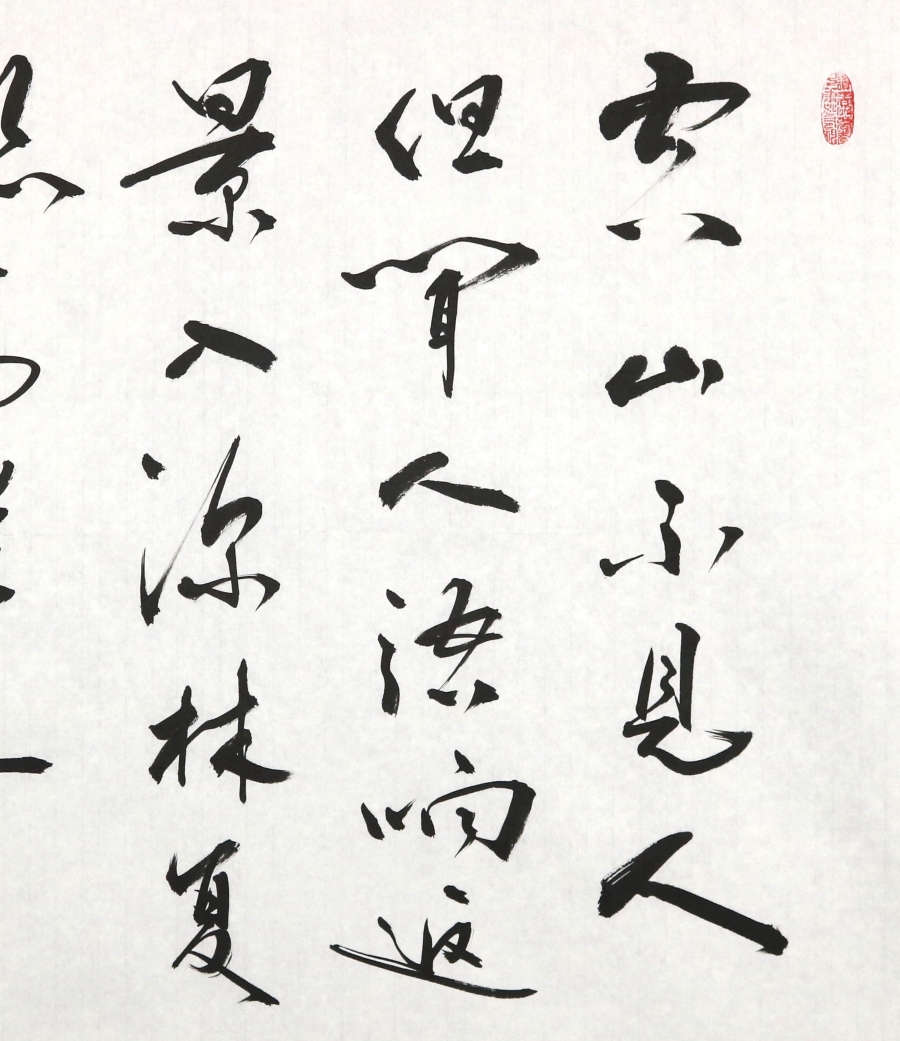 空山不見人
但聞人語响返
景入深林复